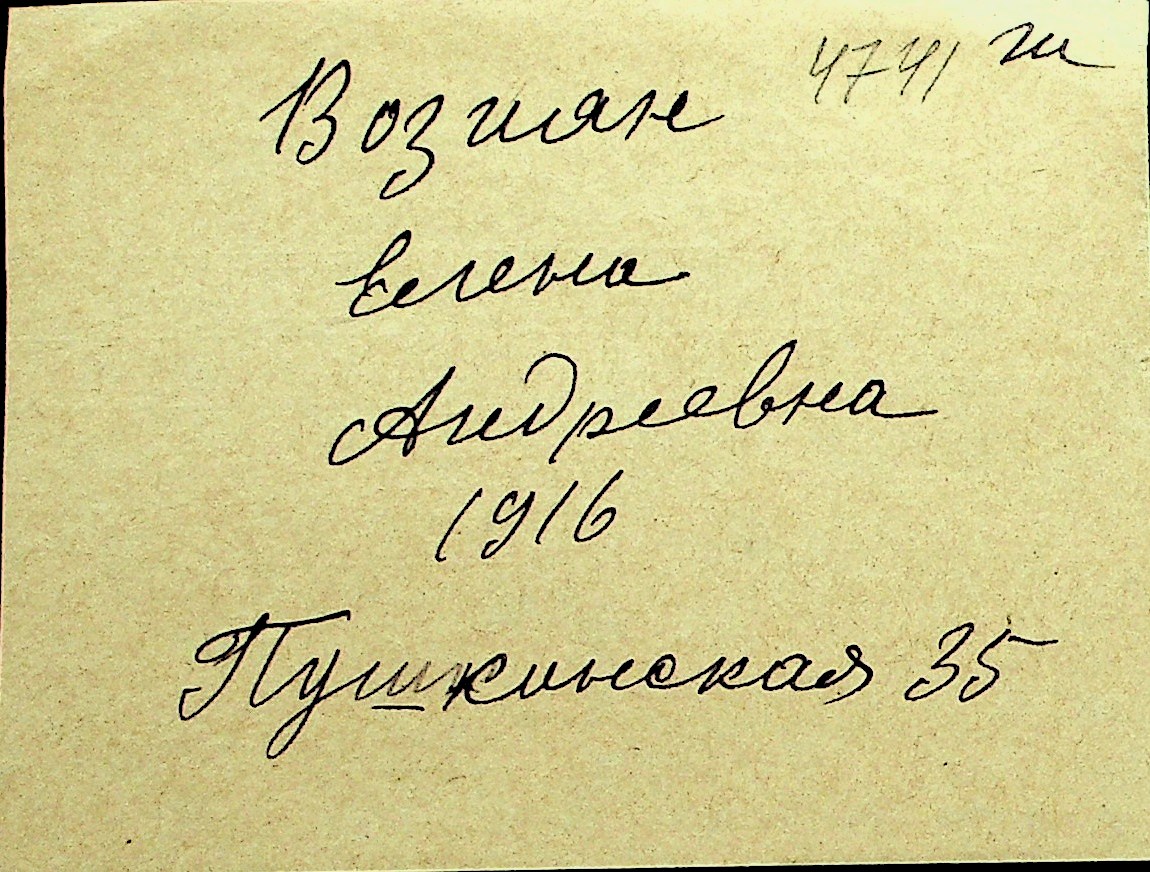 Возиян 4741
Елена
Андреевна
1916
Пушкинская 35